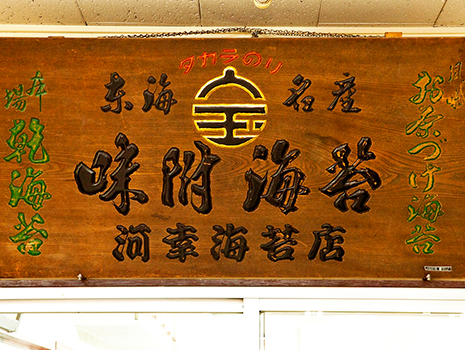 タカラのり
宝
東海 名産
味附海苔
河幸海苔店
お茶づけ海苔
本場
乾海苔